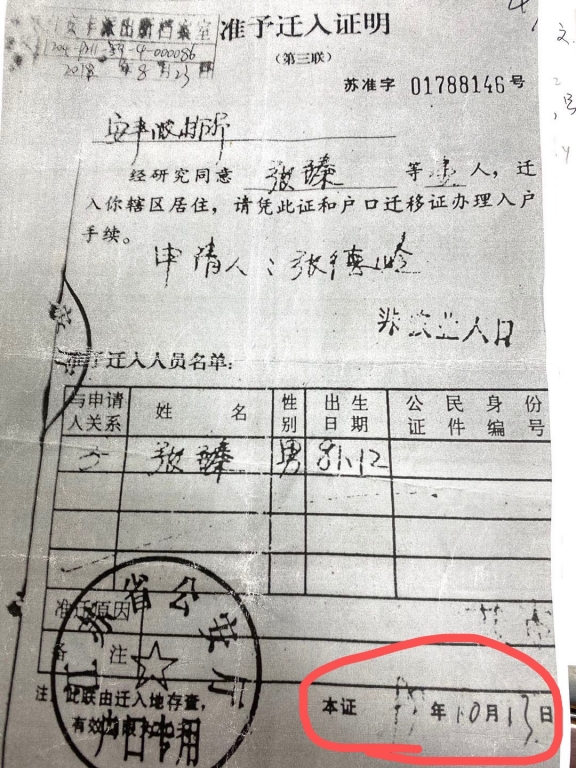 派出所档案室
2018年8月23日
准予迁入证明
(第三联)
苏准字 01788146号
安丰派出所
经研究同意 张臻 等 人，迁
入你辖区居住，请凭此证和户口迁移证办理入户
手续。
申请人：张德岭
非农业人口
准予迁入人员名单：
与申请人关系 姓名 性别 出生日期 公民身份证件编号
子 张臻 男 81.12
准迁原因
备注
江苏省公安厅
户口专用
注：此联由迁入地存查，
有效期限为 天
本证 年10月13日